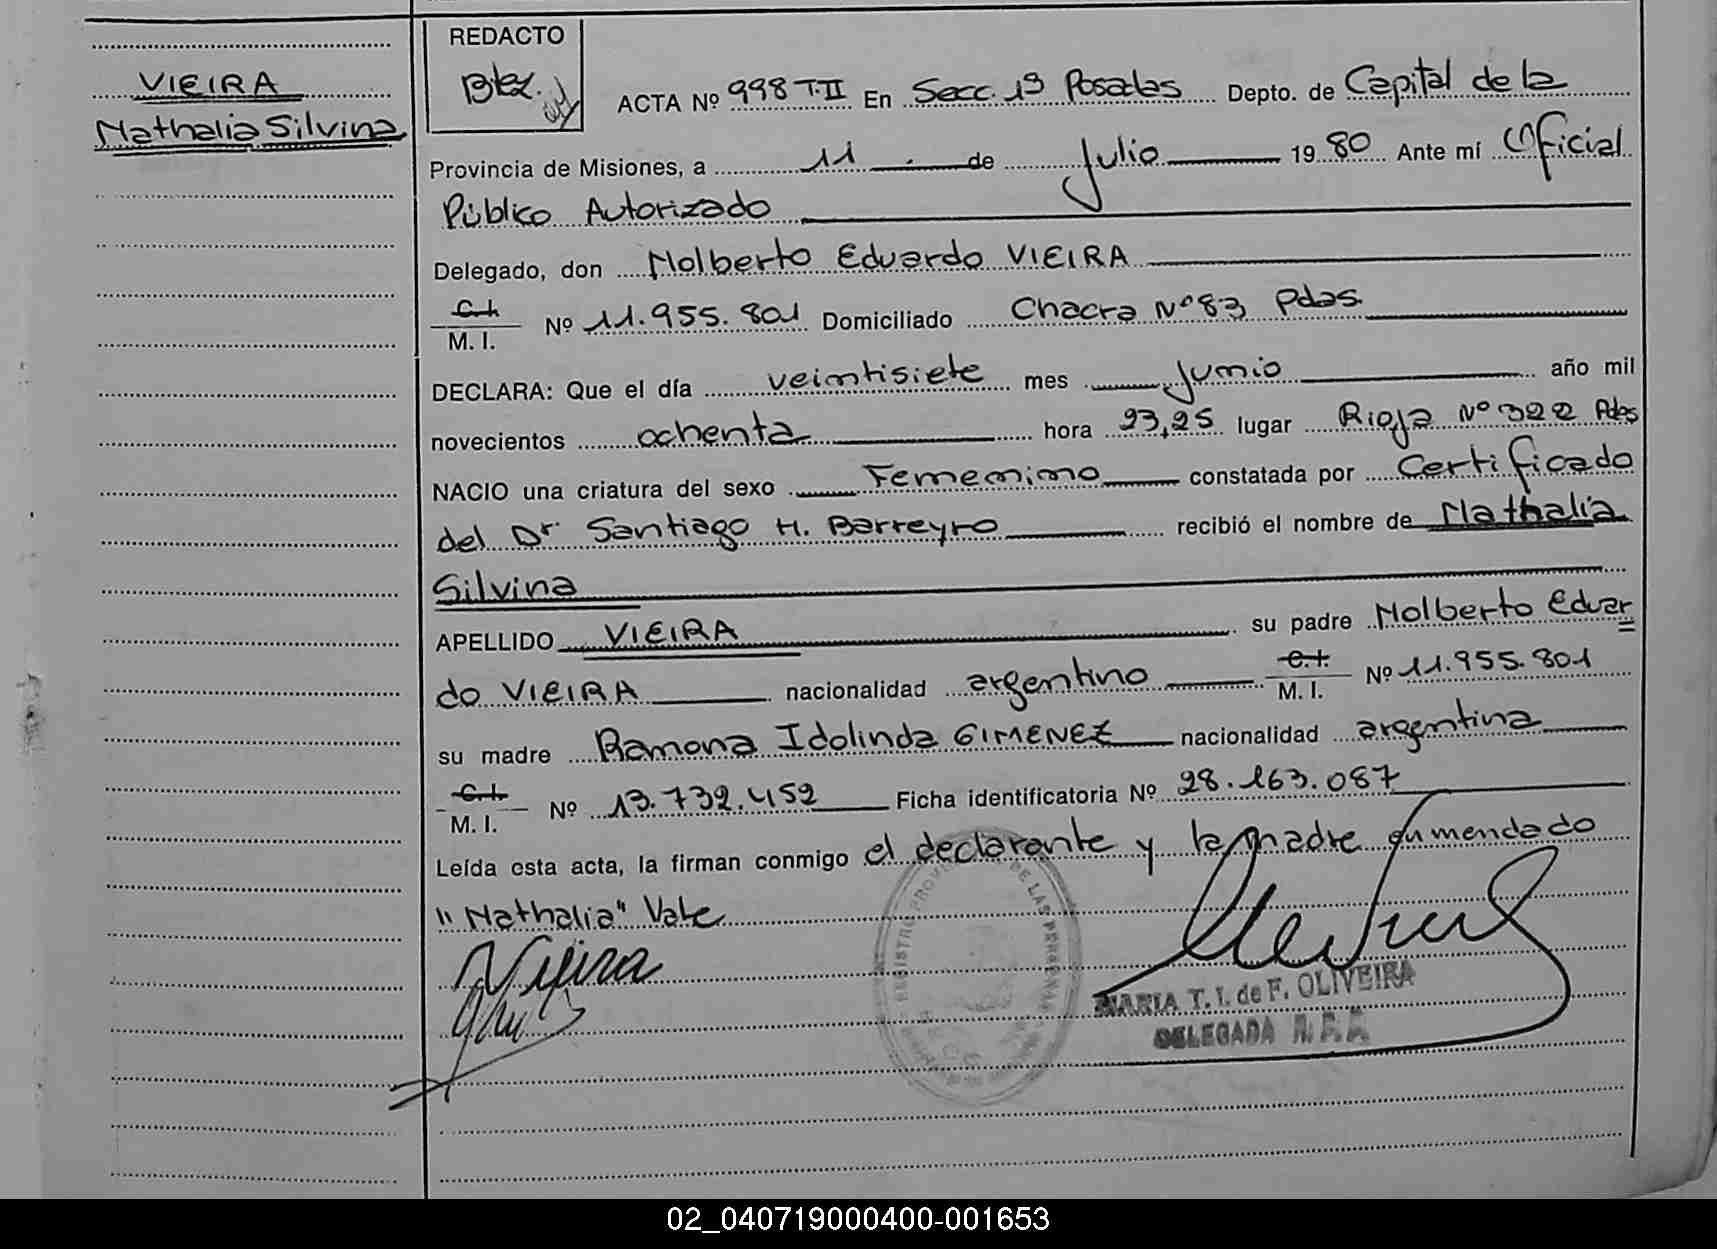 VIEIRA
Nathalia Silvina
REDACTO
ACTA Nº 998 T.II En Secc. 1ª Posadas Depto. de Capital de la
Provincia de Misiones, a 11 de Julio 1980 Ante mí Oficial
Público Autorizado
Delegado, don Nolberto Eduardo VIEIRA
C.I.
M. I. Nº 11.955.801 Domiciliado Chacra Nº 83 Pdas.
DECLARA: Que el día veintisiete mes Junio año mil
novecientos ochenta hora 23,25 lugar Rioja Nº 322 Pdas
NACIO una criatura del sexo Femenino constatada por Certificado
del Dr. Santiago H. Barreyro recibió el nombre de Nathalia
Silvina
APELLIDO VIEIRA su padre Nolberto Eduar
do VIEIRA nacionalidad argentino C.I. M. I. Nº 11.955.801
su madre Ramona Idolinda GIMENEZ nacionalidad argentina
C.I.
M. I. Nº 13.732.452 Ficha identificatoria Nº 28.163.087
Leída esta acta, la firman conmigo el declarante y la madre enmendado
"Nathalia" Vale
Vieira
MARIA T. I. de F. OLIVEIRA
DELEGADA
REGISTRO PROV DE LAS PERSONAS
02_040719000400-001653